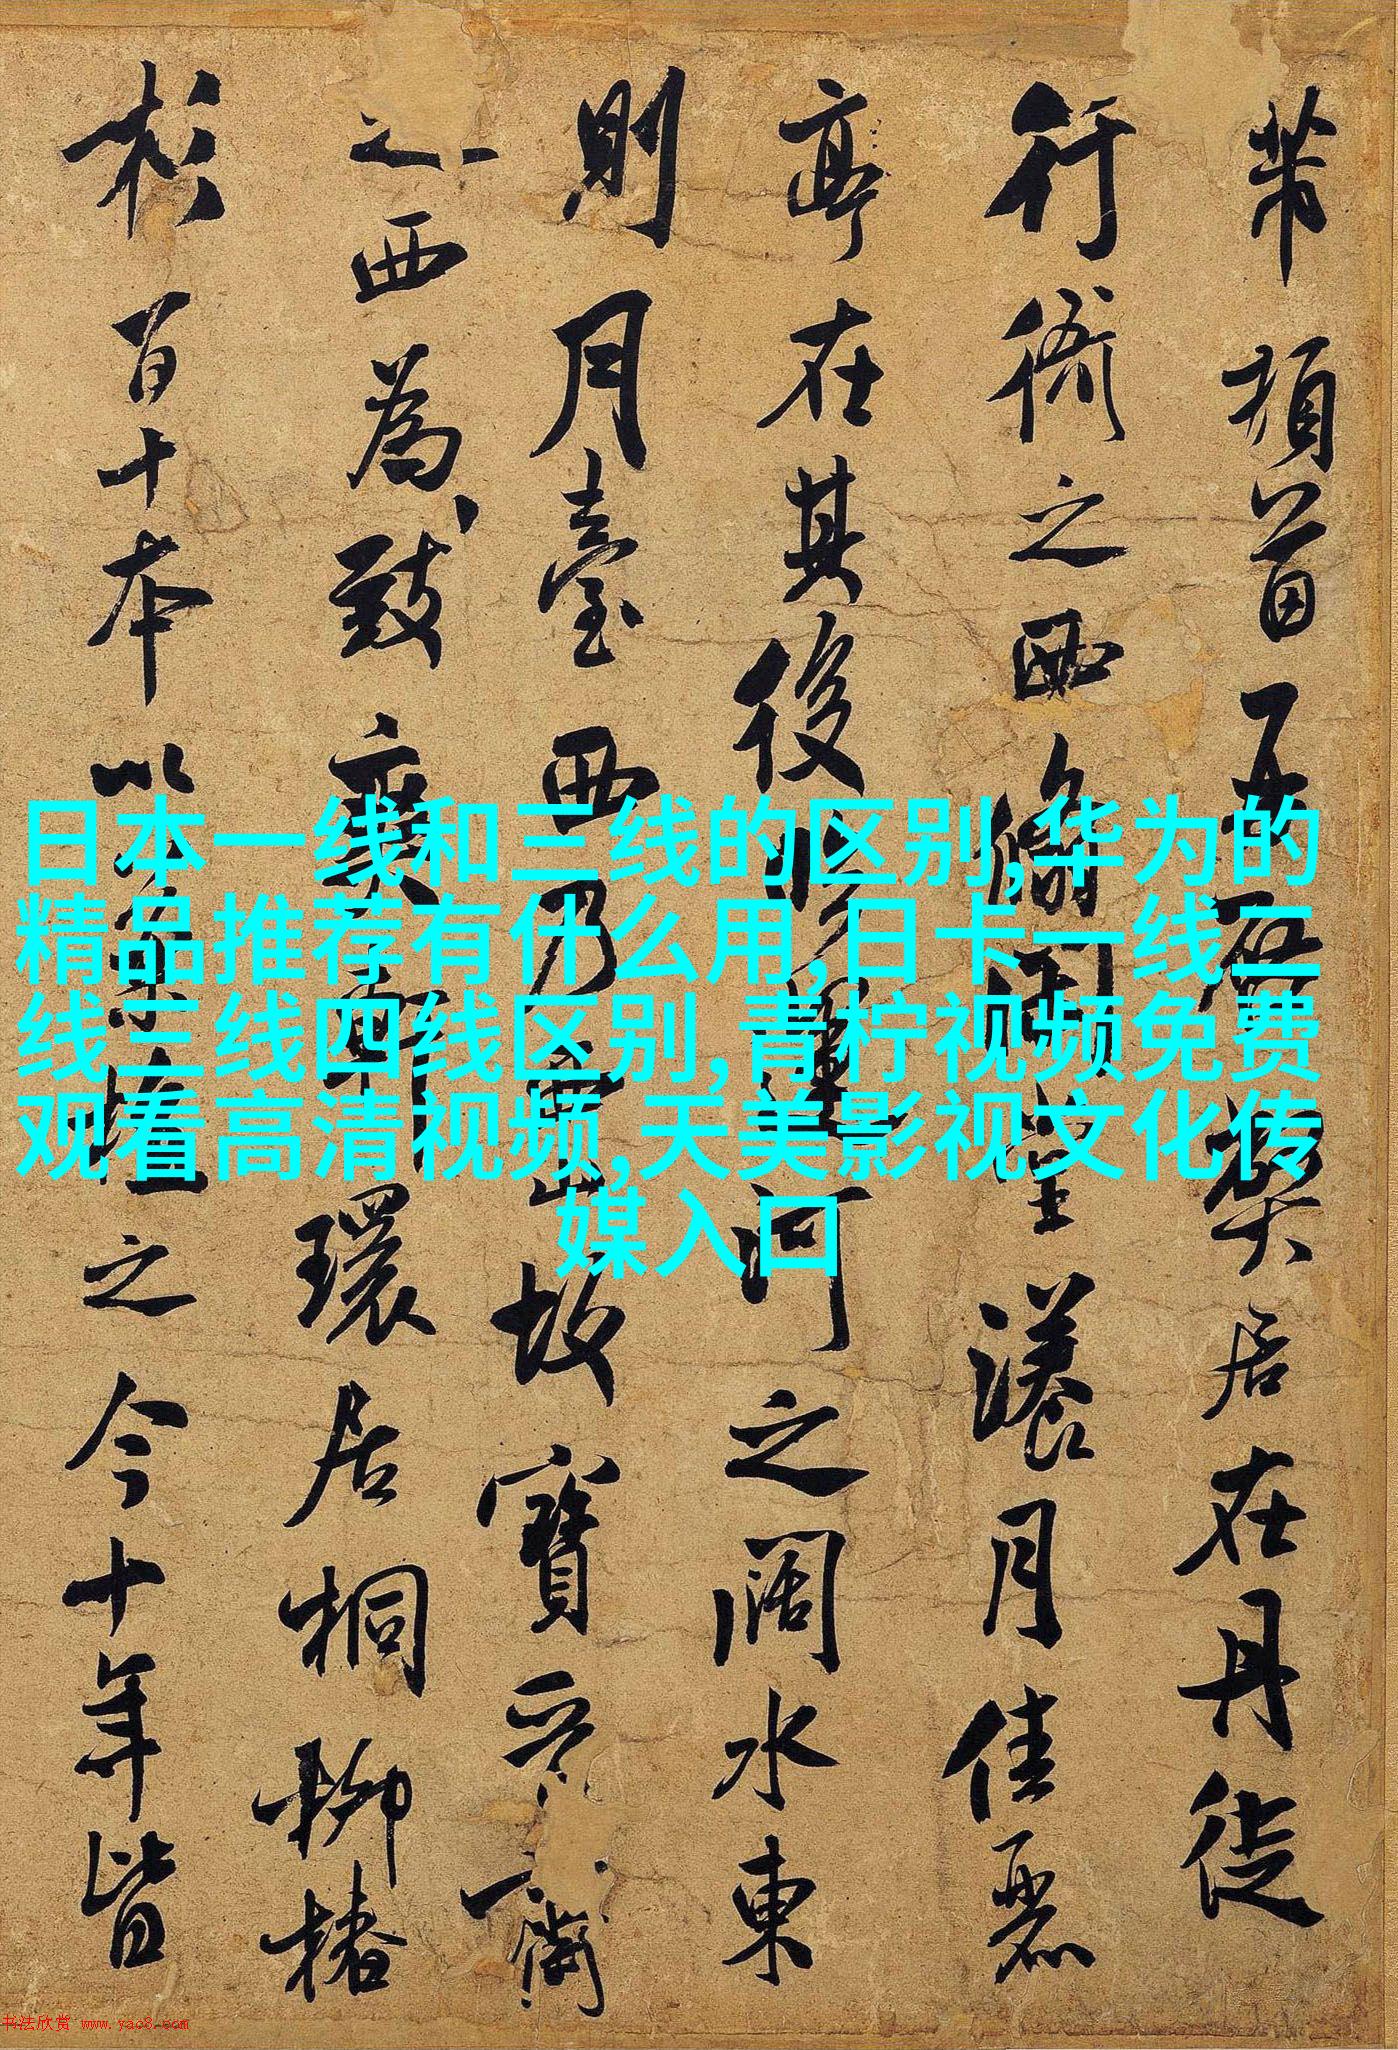 芾頓首再啟弊居在丹徒
行衙之西翛閒堂漾月佳麗
亭在其後臨運河之闊水東
則月臺西乃西山故寶晉齋
之西為致爽軒環居桐柳椿
杉百十本以植之今十年皆
日本一线和三线的区别,华为的
精品推荐有什么用,日卡一线二
线三线四线区别,青柠视频免费
观看高清视频,天美影视文化传
媒入口
书法欣赏 www.yac8.com